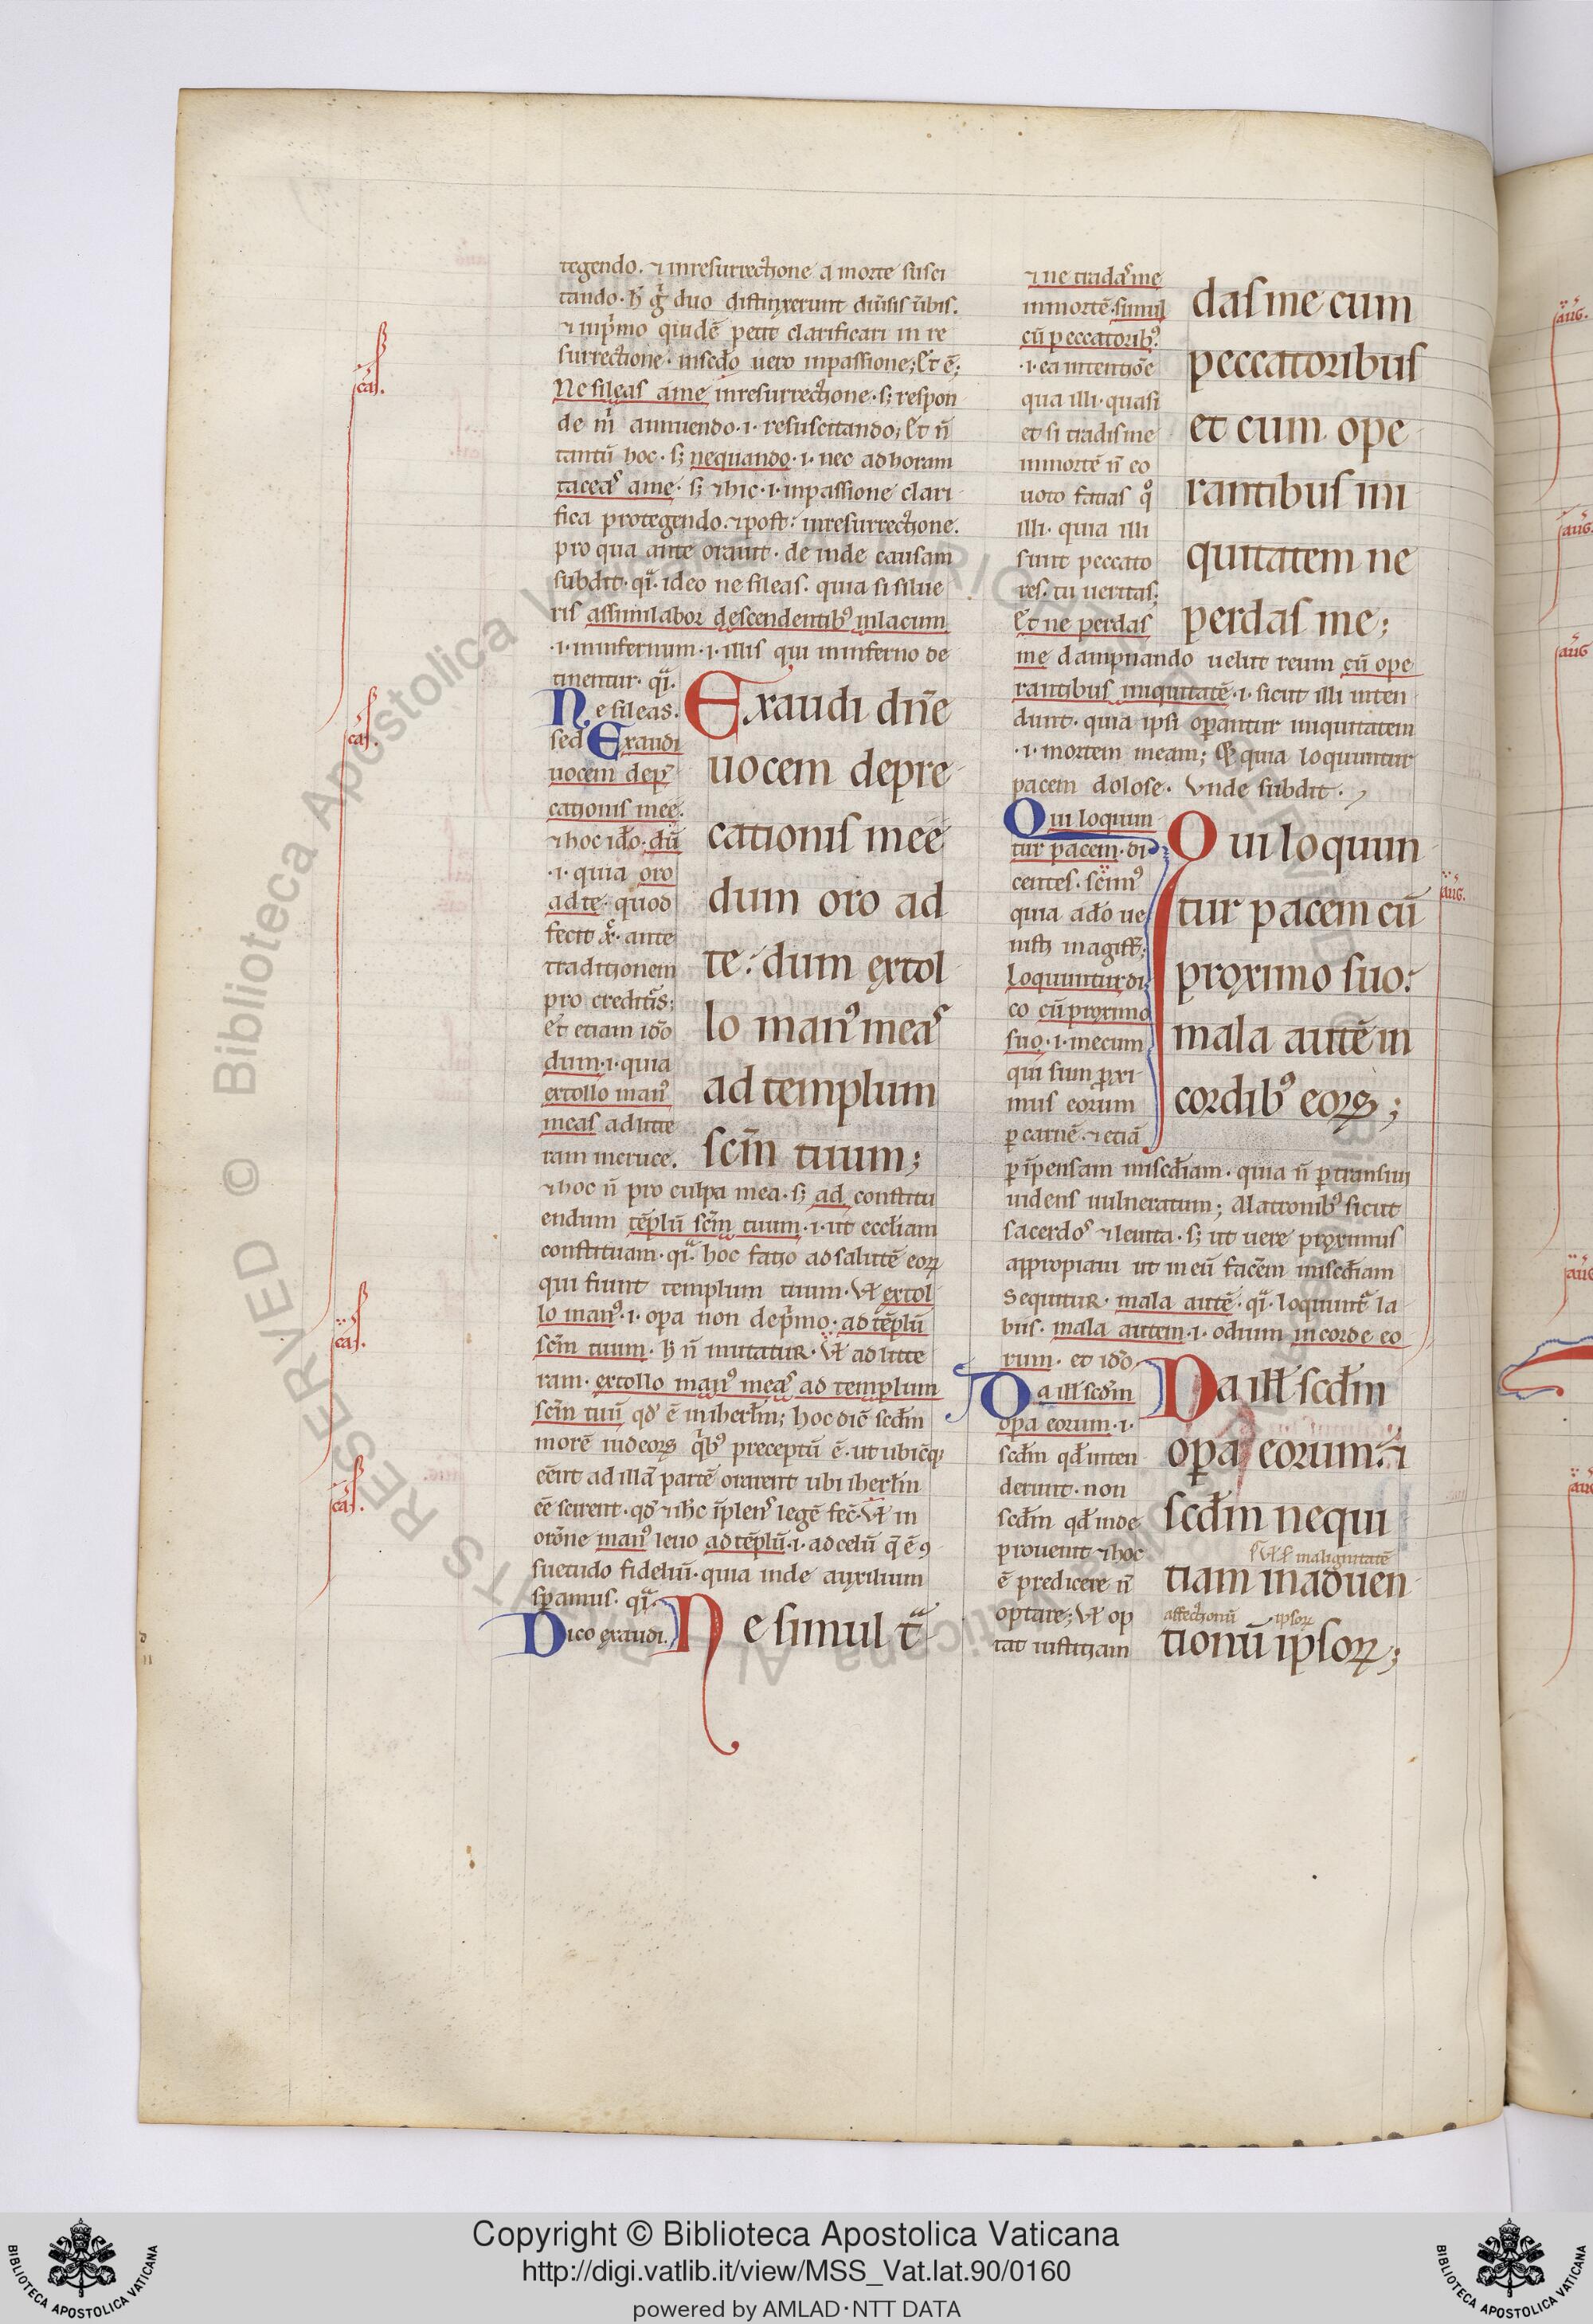 tegendo. ⁊ in resurrectione a morte susci
tando. h̄ g̊ duo distinxerunt diūsis ūbis.
⁊ in p̄mo quidē petit clarificari in re
surrectione. in scd̄o uero in passione; Et ē;
Ne sileas a me in resurrectione. s; respon
de m̄ annuendo .i. resuscitando; Et n̄
tantū hoc. s; ne quando .i. nec ad horam
taceas a me. s; ⁊ hic .i. in passione clari
fica protegendo. ⁊ post in resurrectione.
pro qua ante orauit. de inde causam
subdit. qᷓ. ideo ne sileas. quia si silue
ris assimilabor descendentibꝰ in lacum
.i. in infernum .i. illis qui in inferno de
tinentur. qᷓ.
Ne sileas.
sed Exaudi
uocem dep̄
cationis mee.
⁊ hoc id̄o. dū
.i. quia oro
ad te. quod
fecit x̄. ante
traditionem
pro credit̄is;
Et etiam id̄o
dum .i. quia
extollo manꝰ
meas ad litte
ram in cruce.
Exaudi dn̄e
uocem depre
cationis mee
dum oro ad
te. dum extol
lo manꝰ meas
ad templum
scm̄ tuum;
⁊ hoc n̄ pro culpa mea. s; ad constitu
endum tēplū scm̄ tuum .i. ut eccl̄iam
constituam. qᷓ. hoc fatio ad salutē eoꝝ
qui fiunt templum tuum. Vl̄ extol
lo manꝰ .i. opa non dep̄mo. ad tēplū
scm̄ tuum. h̄ n̄ mutatur. Vl̄ ad litte
ram. extollo manꝰ meas ad templum
scm̄ tuū qd̄ ē in iherl̄m; hoc dic̄ scd̄m
morē iudeoꝝ qͥbꝰ preceptū ē. ut ubicēqꝫ
eēnt ad illā partē orarent ubi iherl̄m
eē scirent. qd̄ ⁊ hīc īplens legē fec̄. Vl̄ in
orōne manꝰ leuo ad tēplū .i. ad celū q̄ ē ꝯ
suetudo fideliū. quia inde auxilium
speramus. qᷓ.
Dico exaudi.
Ne simul tᷓ
⁊ ne tradas me
in mortē. simul
cū peccatoribꝰ.
.i. ea intentiōe
qua illi. quasi
et si tradis me
in mortē n̄ eo
uoto fatias qͦ
illi. quia illi
sunt peccato
res. tu ueritas;
Et ne perdas
das me cum
peccatoribus
et cum ope
rantibus ini
quitatem ne
perdas me;
me dampnando uelut reum cū ope
rantibus iniquitatē .i. sicut illi inten
dunt. quia ipsi oꝑantur iniquitatem
.i. mortem meam; Et quia loquuntur
pacem dolose. Vnde subdit.
Qui loquun
tur pacem. di
centes. scimꝰ
quia a d̄o ue
nisti magist̄;
Loquuntur di
co cū proximo
suo .i. mecum
qui sum ꝓxi
mus eorum
ꝑ carnē. ⁊ etiā
Qui loquun
tur pacem cū
proximo suo.
mala autē in
cordibꝰ eoꝝ;
ꝑ īpensam mis̄cdiam. quia n̄ ꝑtransiui
uidens uulneratum; A latronibꝰ sicut
sacerdos ⁊ leuita. s; ut uere proximus
appropiaui ut in eū facēm mis̄cdiam
Sequitur. mala autē. qᷓ. loquunt̄ la
biis. mala autem .i. odium in corde eo
rum. et id̄o
Da ill̄ scd̄m
oꝑa eorum .i.
scd̄m qd̄ inten
derunt. non
scd̄m qd̄ inde
prouenit ⁊ hoc
ē predicere n̄
optare; Vl̄ op
tat iustitiam
Da ill̄ scd̄m
oꝑa eorum. ⁊
scd̄m nequi
malignitatē
tiam ad inuen
affectionū ipsoꝝ
tionū ipsoꝝ;
cas̄.
cas̄.
cas̄.
cas̄.
aug.
aug.
aug.
aug
Copyright © Biblioteca Apostolica Vaticana
http://digi.vatlib.it/view/MSS_Vat.lat.90/0160
powered by AMLAD·NTT DATA
BIBLIOTECA APOSTOLICA VATICANA
BIBLIOTECA APOSTOLICA VATICANA